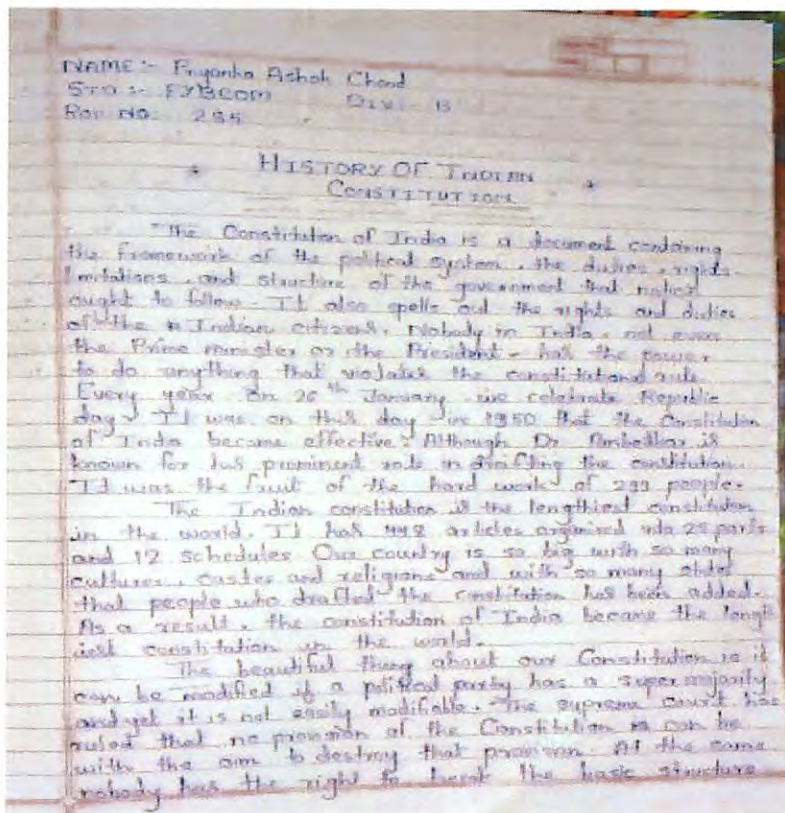 NAME :- Priyanka Ashok Chand
STD :- FYBCOM Div :- B
Roll NO: 255
* HISTORY OF INDIAN *
CONSTITUTION
The Constitution of India is a document containing
the framework of the political system, the duties, rights
limitations, and structure of the government that nation
ought to follow. It also spells out the rights and duties
of the Indian citizens. Nobody in India, not even
the Prime minister or the President - has the power
to do anything that violates the constitutional rule
Every year on 26th January we celebrate Republic
day. It was on this day in 1950 that the Constitution
of India became effective. Although Dr. Ambedkar is
known for his prominent role in drafting the constitution.
It was the fruit of the hard work of 299 people.
The Indian constitution is the lengthiest constitution
in the world. It has 448 articles organised into 25 parts
and 12 schedules Our country is so big with so many
cultures, castes and religions and with so many states
that people who drafted the constitution has been added.
As a result, the constitution of India became the length
iest constitution in the world.
The beautiful thing about our Constitution is it
can be modified if a political party has a supermajority
and yet it is not easily modifiable. The supreme court has
ruled that no provision of the Constitution can be
with the aim to destroy that provision. At the same
nobody has the right to break the basic structure